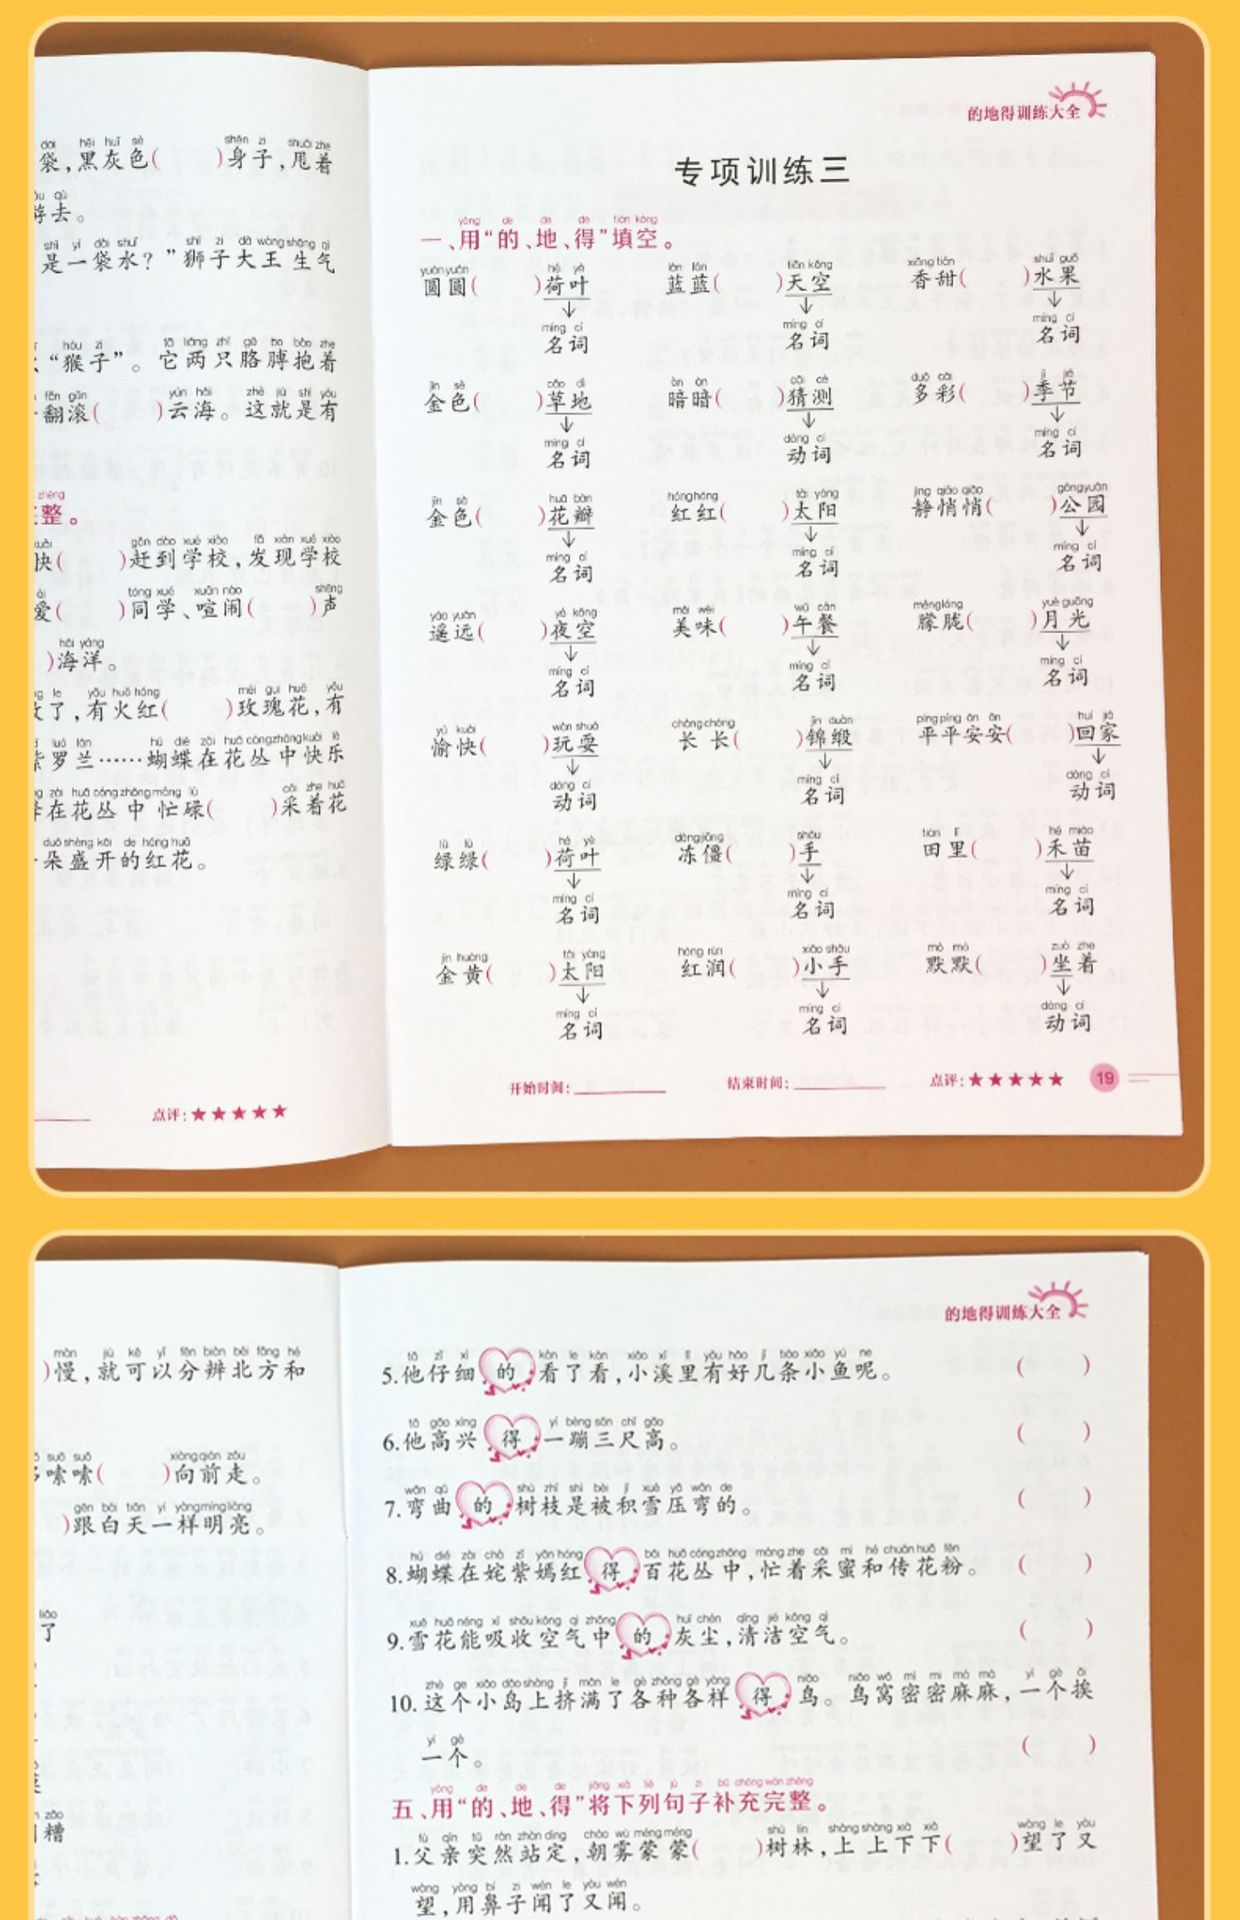 袋，黑灰色(　　)身子，甩着
去。
是一袋水？”狮子大王生气
“猴子”。它两只胳膊抱着
翻滚(　　)云海。这就是有
整。
快(　　)赶到学校，发现学校
爱(　　)同学、喧闹(　　)声
)海洋。
了，有火红(　　)玫瑰花，有
罗兰……蝴蝶在花丛中快乐
在花丛中忙碌(　　)采着花
朵盛开的红花。
点评：★★★★★
的地得训练大全
专项训练三
一、用“的、地、得”填空。
圆圆(　　)荷叶　蓝蓝(　　)天空　香甜(　　)水果
名词　名词　名词
金色(　　)草地　暗暗(　　)猜测　多彩(　　)季节
名词　动词　名词
金色(　　)花瓣　红红(　　)太阳　静悄悄(　　)公园
名词　名词　名词
遥远(　　)夜空　美味(　　)午餐　朦胧(　　)月光
名词　名词　名词
愉快(　　)玩耍　长长(　　)锦缎　平平安安(　　)回家
动词　名词　动词
绿绿(　　)荷叶　冻僵(　　)手　田里(　　)禾苗
名词　名词　名词
金黄(　　)太阳　红润(　　)小手　默默(　　)坐着
名词　名词　动词
开始时间：　结束时间：　点评：★★★★★　19
)慢，就可以分辨北方和
嗦嗦(　　)向前走。
)跟白天一样明亮。
了
糟
的地得训练大全
5.他仔细 的 看了看，小溪里有好几条小鱼呢。(　　)
6.他高兴 得 一蹦三尺高。(　　)
7.弯曲 的 树枝是被积雪压弯的。(　　)
8.蝴蝶在姹紫嫣红 得 百花丛中，忙着采蜜和传花粉。(　　)
9.雪花能吸收空气中 的 灰尘，清洁空气。(　　)
10.这个小岛上挤满了各种各样 得 鸟。鸟窝密密麻麻，一个挨
一个。(　　)
五、用“的、地、得”将下列句子补充完整。
1.父亲突然站定，朝雾蒙蒙(　　)树林，上上下下(　　)望了又
望，用鼻子闻了又闻。